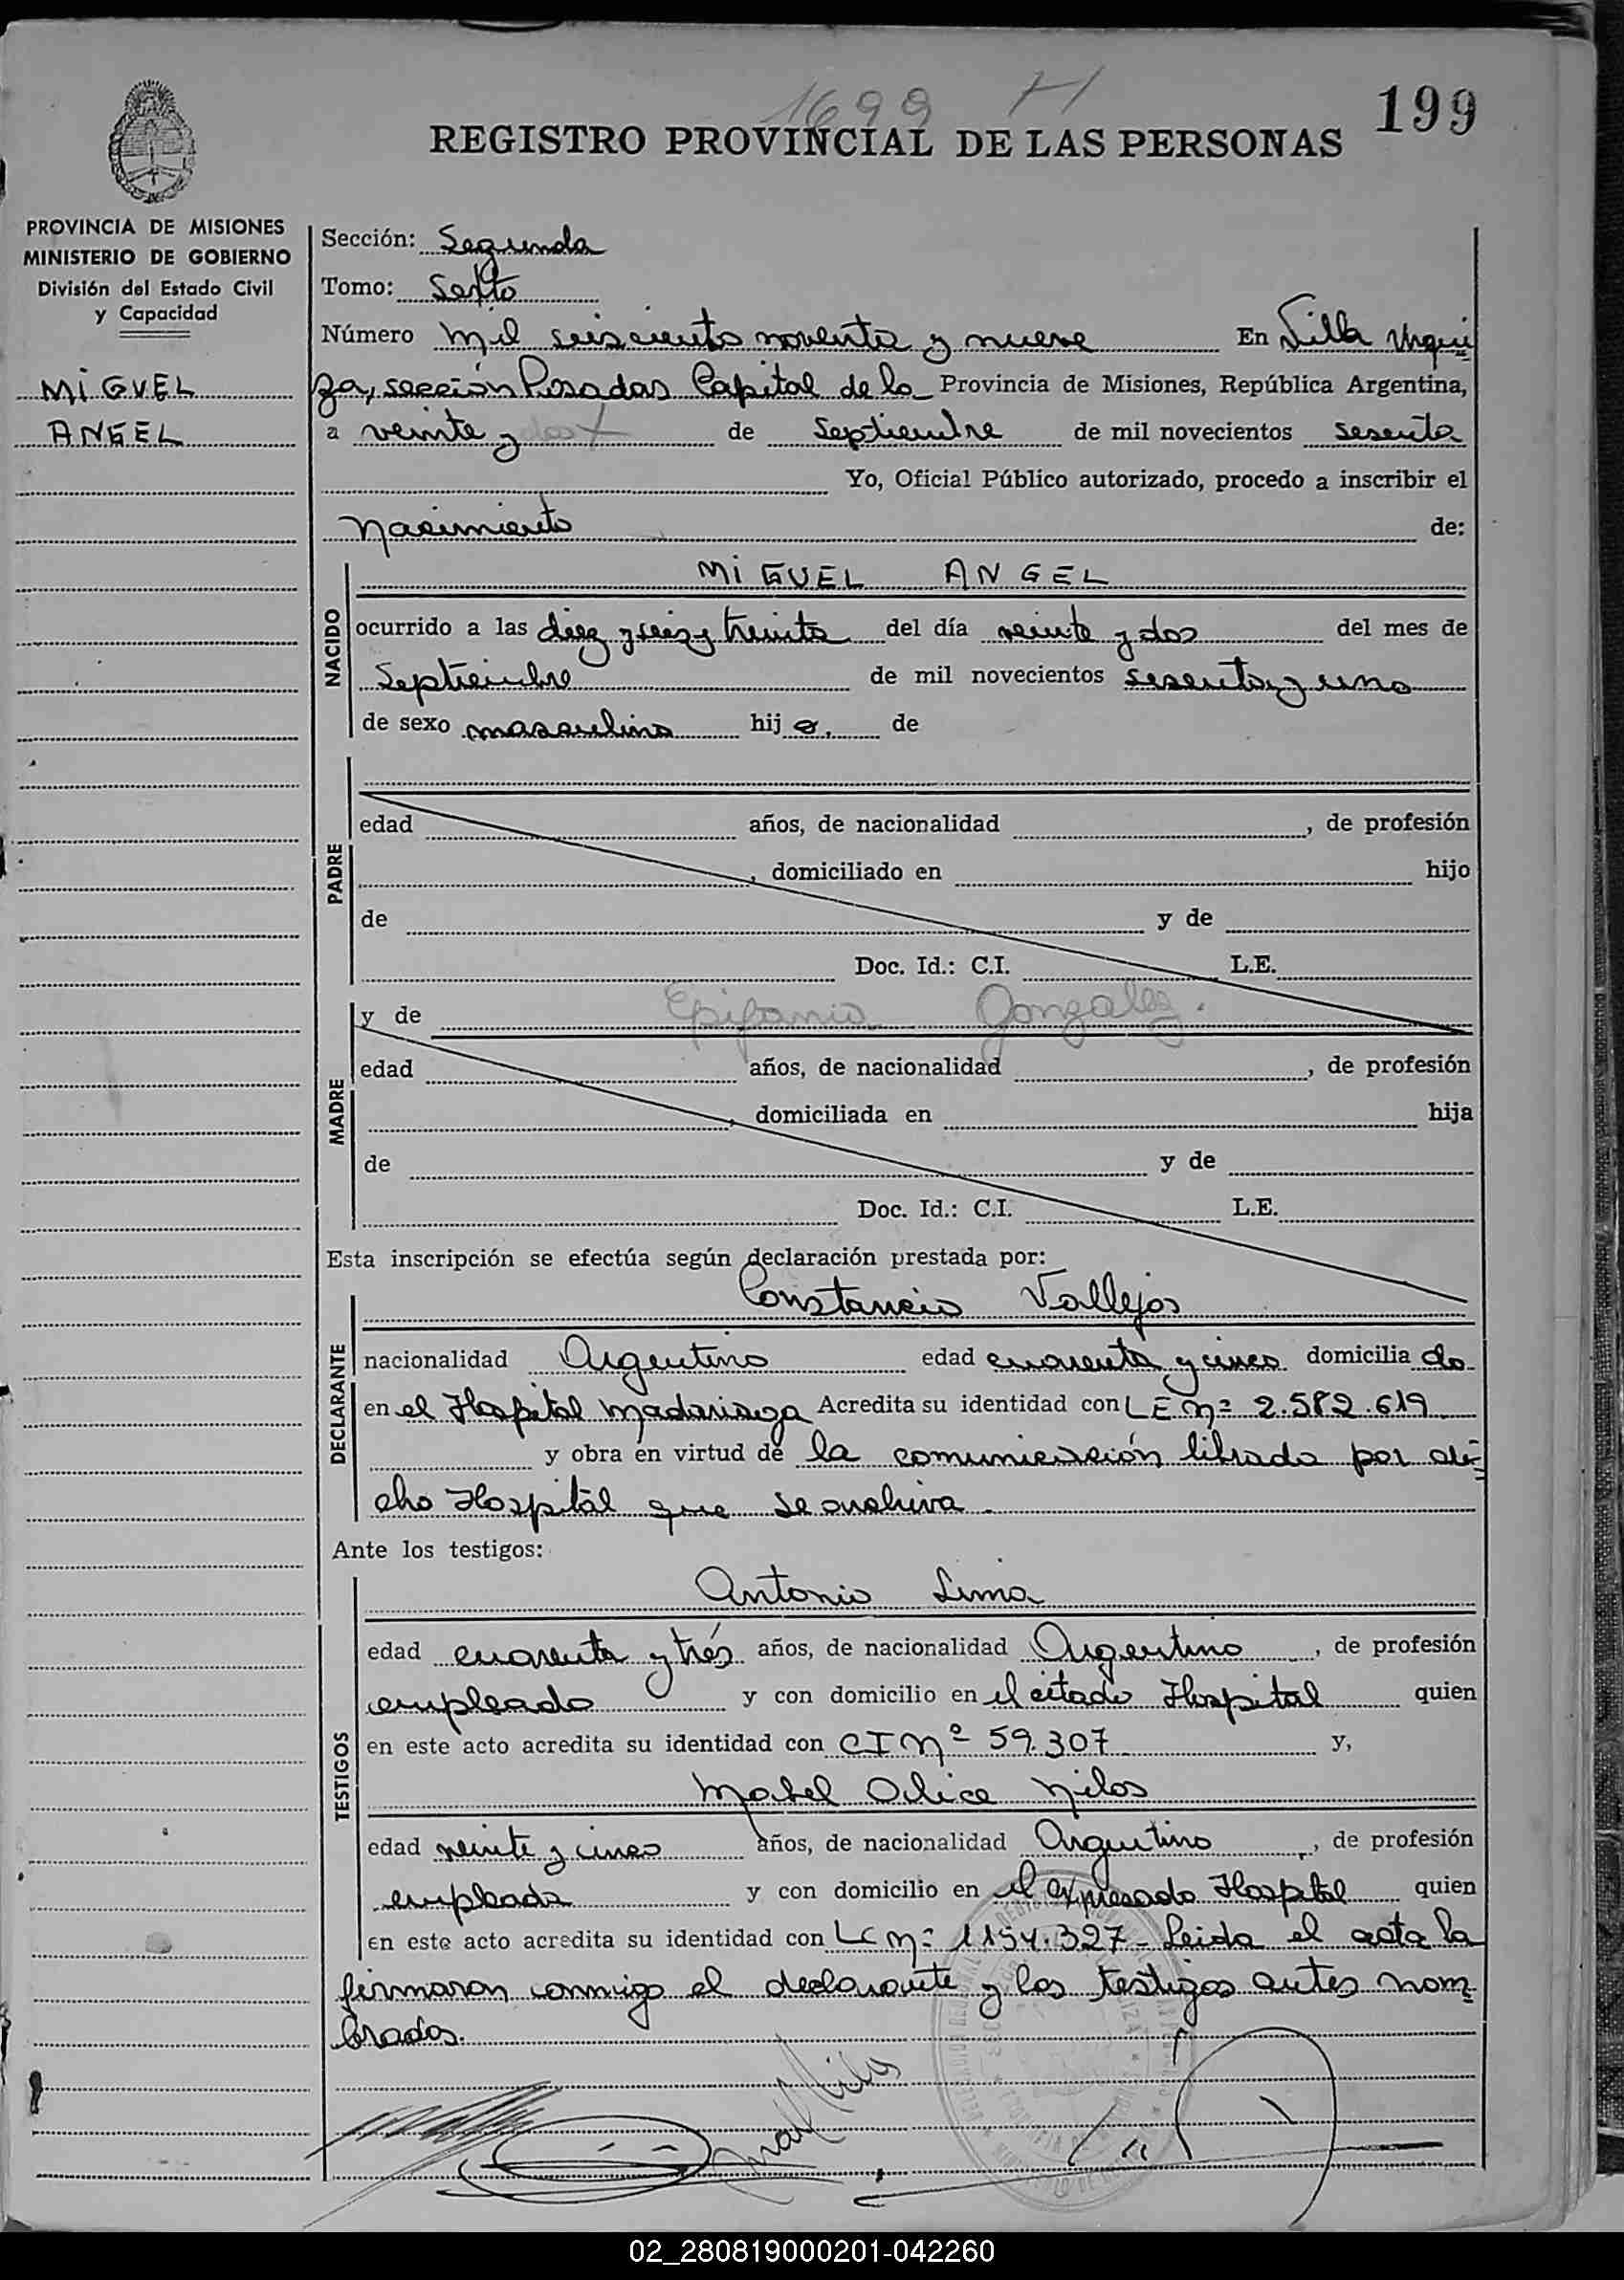 1699 H
199
REGISTRO PROVINCIAL DE LAS PERSONAS
PROVINCIA DE MISIONES
MINISTERIO DE GOBIERNO
División del Estado Civil
y Capacidad
MIGUEL
ANGEL
Sección: Segunda
Tomo: Sexto
Número mil seisciento noventa y nueve En Villa Urqui
za, sección Posadas Capital de la Provincia de Misiones, República Argentina,
a veinte y dos de Septiembre de mil novecientos sesenta
Yo, Oficial Público autorizado, procedo a inscribir el
Nacimiento de:
NACIDO
MIGUEL ANGEL
ocurrido a las diez y seis y treinta del día veinte y dos del mes de
Septiembre de mil novecientos sesenta y uno
de sexo masculino hijo. de
PADRE
edad años, de nacionalidad , de profesión
, domiciliado en hijo
de y de
Doc. Id.: C.I. L.E.
MADRE
y de Epifania Gonzalez.
edad años, de nacionalidad , de profesión
, domiciliada en hija
de y de
Doc. Id.: C.I. L.E.
Esta inscripción se efectúa según declaración prestada por:
DECLARANTE
Constancio Vallejos
nacionalidad Argentino edad cuarenta y cinco domicilia do
en el Hospital Madariaga Acredita su identidad con L E Nº 2.582.619
y obra en virtud de la comunicación librada por di-
cho Hospital que se archiva.
Ante los testigos:
TESTIGOS
Antonio Lima
edad cuarenta y trés años, de nacionalidad Argentino , de profesión
empleado y con domicilio en el citado Hospital quien
en este acto acredita su identidad con CI Nº 59.307 y,
Mabel Alice Milos
edad veinte y cinco años, de nacionalidad Argentino , de profesión
empleada y con domicilio en el expresado Hospital quien
en este acto acredita su identidad con LC Nº 1154.327- Leida el acta la
firmaron conmigo el declarante y los testigos antes nom-
brados.
02_280819000201-042260